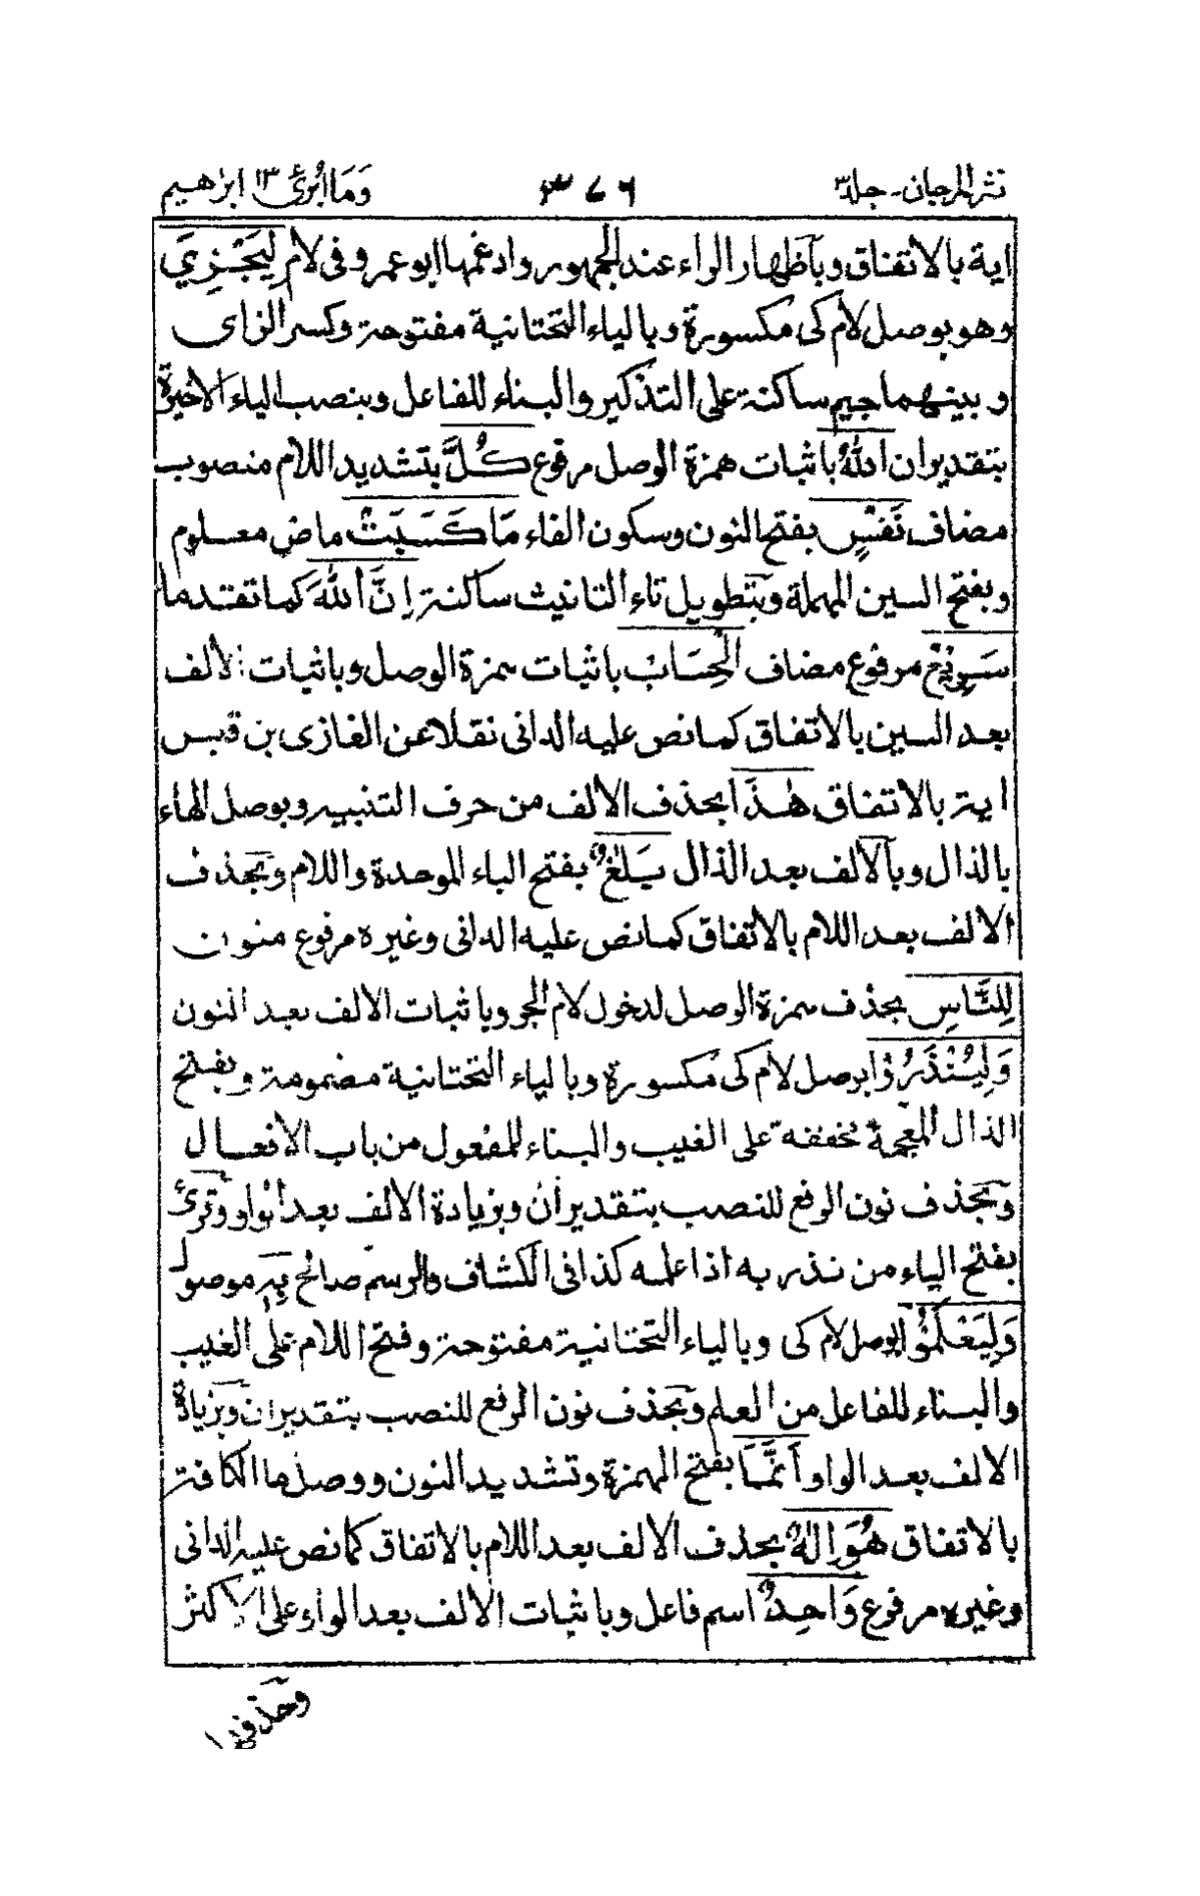 نثر المرجان - جلد ٣
٣٧٦
وَمَا اُبَرِّئُ ١٣ ابرٰهيم
اية بالاتفاق وبآظهار الراء عند الجمهور وادغمها ابو عمرو فى لام لِيَجْزِيَ
وهو بوصل لام كى مكسورة وبالياء التحتانية مفتوحة وكسر الزاى
وبينهما جيم ساكنة على التذكير والبناء للفاعل وبنصب الياء الاخيرة
بتقدير ان اللّٰهُ باثبات همزة الوصل مرفوع كُلَّ بتشديد اللام منصوب
مضاف نَفْسٍ بفتح النون وسكون الفاء مَا كَسَبَتْ ماض معلوم
وبفتح السين المهملة وبتطويل تاء التانيث ساكنة اِنَّ اللّٰهَ كما تقدما
سَرِيْعُ مرفوع مضاف الْحِسَابْ باثبات همزة الوصل وباثبات الالف
بعد السين بالاتفاق كما نص عليه الدانى نقلا عن الغازى بن قيس
اية بالاتفاق هٰذَا بحذف الالف من حرف التنبيه وبوصل الهاء
بالذال وبآلالف بعد الذال بَلٰغٌ بفتح الباء الموحدة واللام وبحذف
الالف بعد اللام بالاتفاق كما نص عليه الدانى وغيره مرفوع منون
لِلنَّاسِ بحذف همزة الوصل لدخول لام الجر وباثبات الالف بعد النون
وَلِيُنْذَرُوْا بوصل لام كى مكسورة وبالياء التحتانية مضمومة وبفتح
الذال المعجمة مخففة على الغيب والبناء للمفعول من باب الافعال
وبحذف نون الرفع للنصب بتقدير ان وبزيادة الالف بعد الواو وقرئ
بفتح الياء من نذر به اذا علمه كذا فى الكشاف والرسم صالح بِهٖ موصول
وَلِيَعْلَمُوْا بوصل لام كى وبالياء التحتانية مفتوحة وفتح اللام على الغيب
والبناء للفاعل من العلم وبحذف نون الرفع للنصب بتقدير ان وبزيادة
الالف بعد الواو اَنَّمَا بفتح الهمزة وتشديد النون ووصل ما الكافة
بالاتفاق هُوَ اِلٰهٌ بحذف الالف بعد اللام بالاتفاق كما نص عليه الدانى
وغيره مرفوع وَاحِدٌ اسم فاعل وباثبات الالف بعد الواو على الاكثر
وحذفها